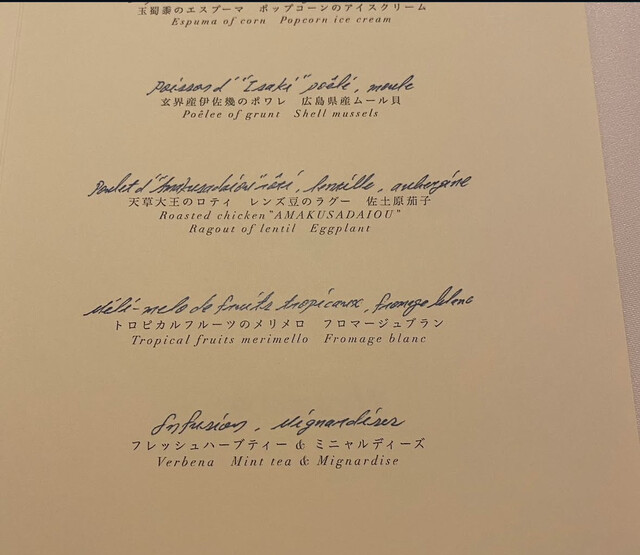 玉蜀黍のエスプーマ ポップコーンのアイスクリーム
Espuma of corn Popcorn ice cream
Poisson d'"Isaki" poêlé, moule
玄界産伊佐幾のポワレ 広島県産ムール貝
Poêlee of grunt Shell mussels
Poulet d'"Amakusadaiou" rôti, lentille, aubergine
天草大王のロティ レンズ豆のラグー 佐土原茄子
Roasted chicken "AMAKUSADAIOU"
Ragout of lentil Eggplant
Méli-melo de fruits tropicaux, fromage blanc
トロピカルフルーツのメリメロ フロマージュブラン
Tropical fruits merimello Fromage blanc
Infusion, Mignardises
フレッシュハーブティー & ミニャルディーズ
Verbena Mint tea & Mignardise